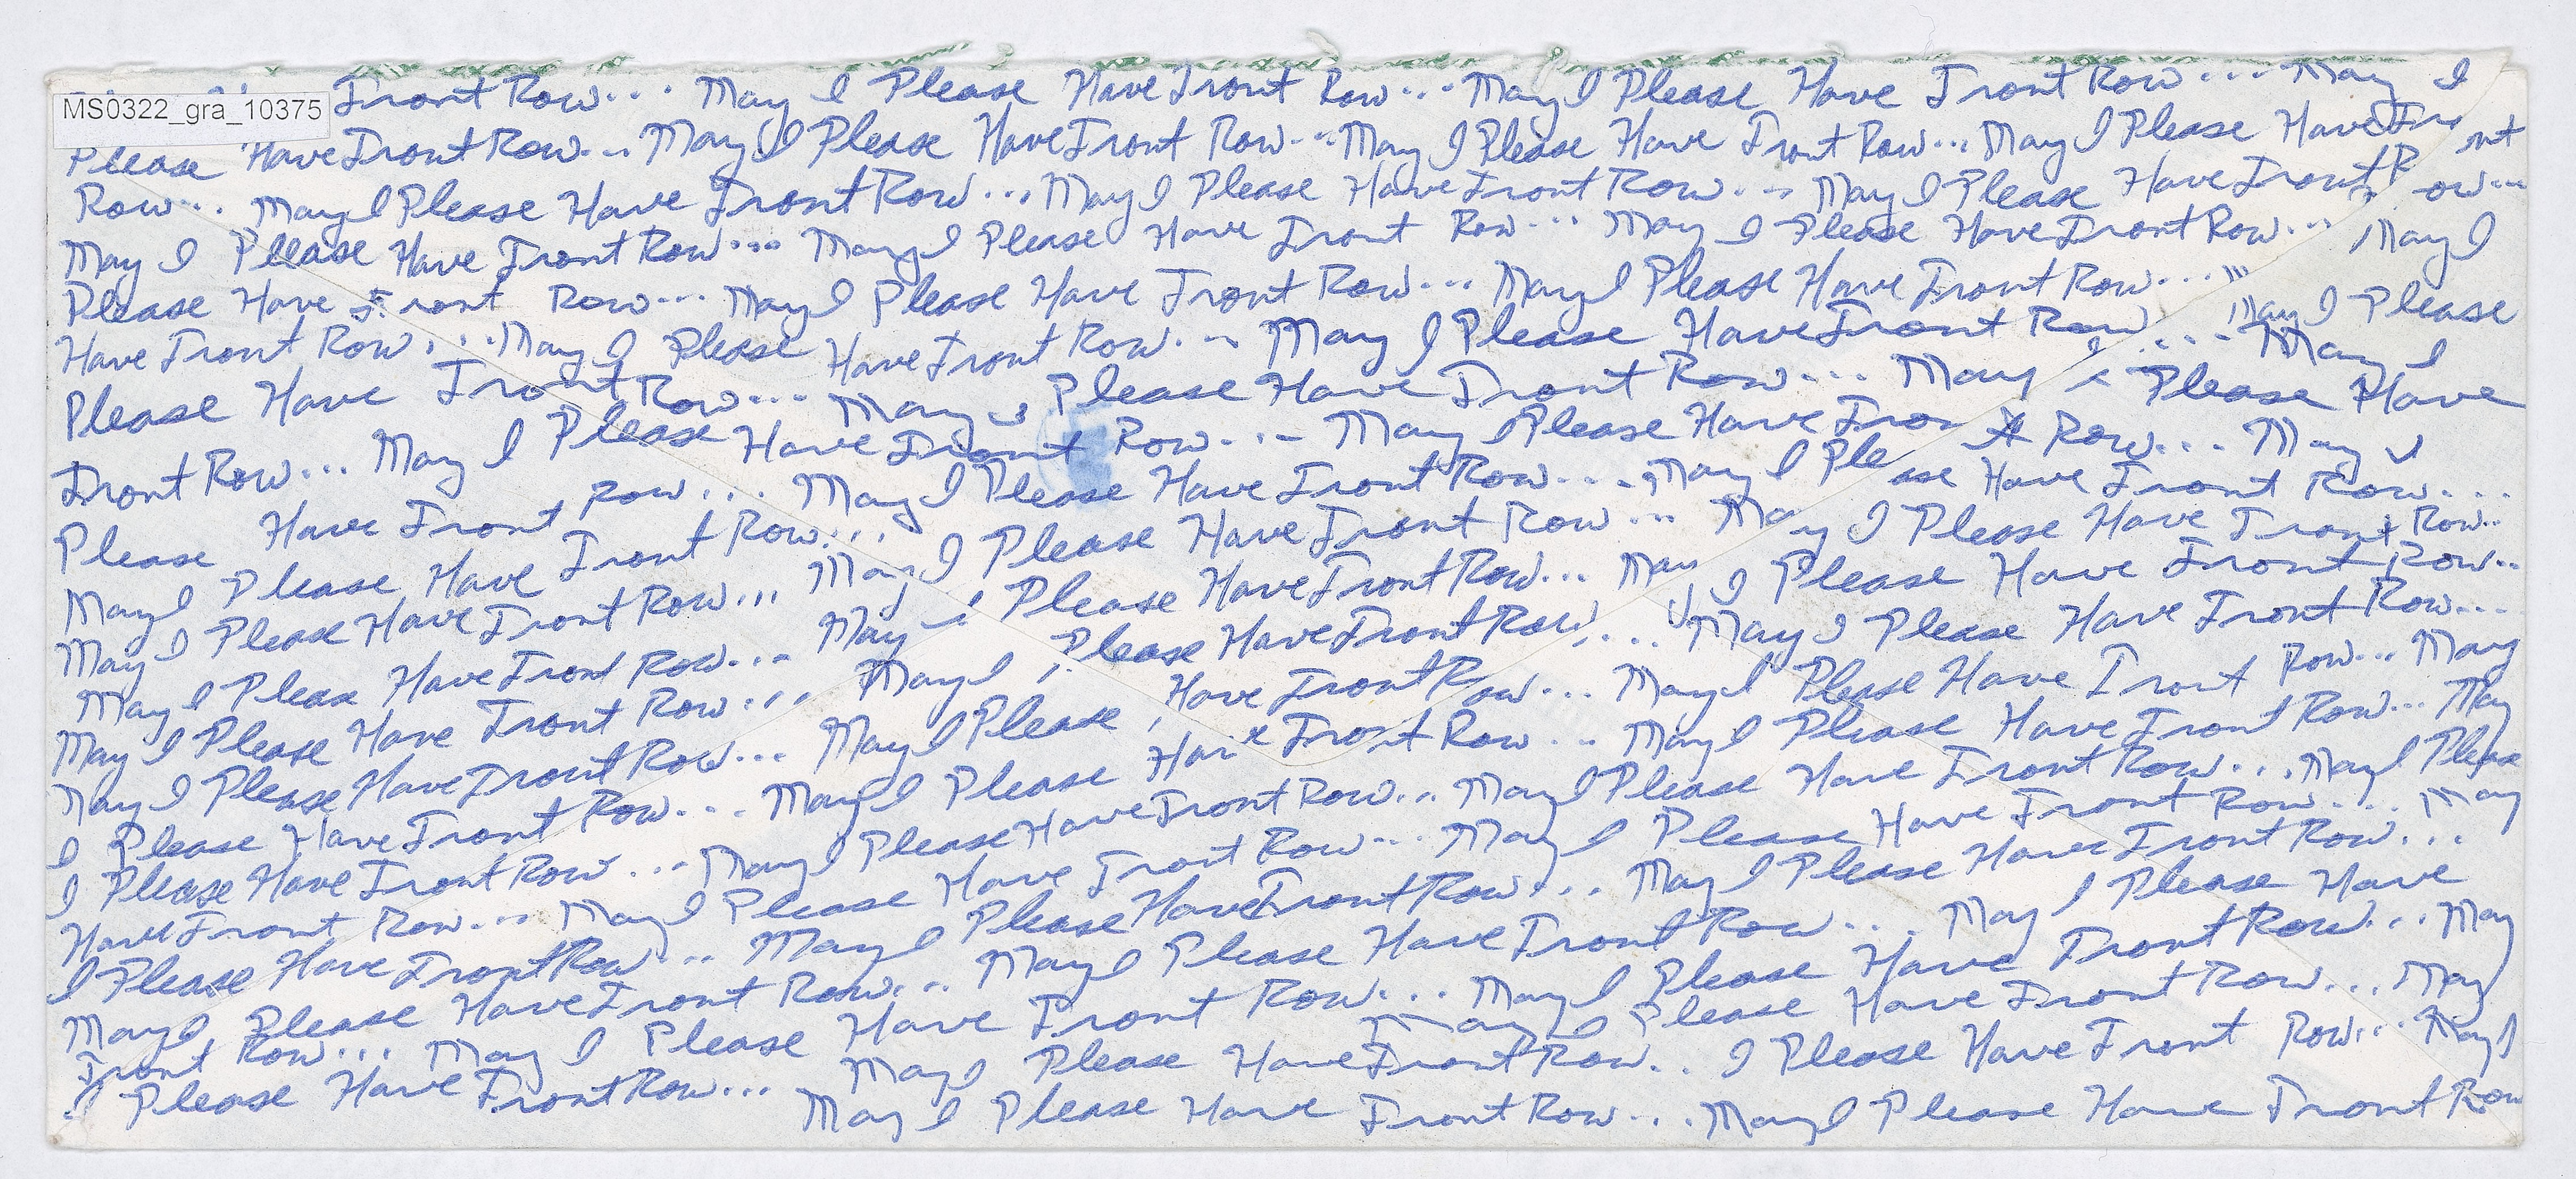 MS0322_gra_10375
Front Row... May I Please Have Front Row... May I Please Have Front Row... May I
Please Have Front Row... May I Please Have Front Row... May I Please Have Front Row... May I Please Have Front
Row... May I Please Have Front Row... May I Please Have Front Row... May I Please Have Front Row...
May I Please Have Front Row... May I Please Have Front Row... May I Please Have Front Row... May I
Please Have Front Row... May I Please Have Front Row... May I Please Have Front Row... May I Please
Have Front Row... May I Please Have Front Row... May I Please Have Front Row... May I
Please Have Front Row... May I Please Have Front Row... May I Please Have
Front Row... May I Please Have Front Row... May I Please Have Front Row... May I
Please Have Front Row... May I Please Have Front Row... May I Please Have Front Row...
May I Please Have Front Row... May I Please Have Front Row... May I Please Have Front Row...
May I Please Have Front Row... May I Please Have Front Row... May I Please Have Front Row...
May I Please Have Front Row... May I Please Have Front Row... May I Please Have Front Row...
May I Please Have Front Row... May I Please Have Front Row... May I Please Have Front Row... May
May I Please Have Front Row... May I Please Have Front Row... May I Please Have Front Row... May
I Please Have Front Row... May I Please Have Front Row... May I Please Have Front Row... May I Please
I Please Have Front Row... May I Please Have Front Row... May I Please Have Front Row... May
Have Front Row... May I Please Have Front Row... May I Please Have Front Row...
I Please Have Front Row... May I Please Have Front Row... May I Please Have
May I Please Have Front Row... May I Please Have Front Row... May I Please Have Front Row... May
Front Row... May I Please Have Front Row... May I Please Have Front Row... May
I Please Have Front Row... May I Please Have Front Row.. I Please Have Front Row... May I
May I Please Have Front Row... May I Please Have Front Row